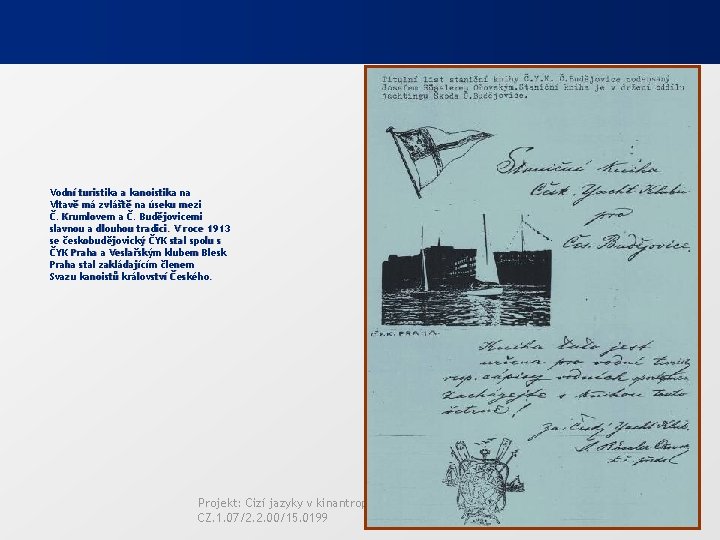 Vodní turistika a kanoistika na
Vltavě má zvláště na úseku mezi
Č. Krumlovem a Č. Budějovicemi
slavnou a dlouhou tradici. V roce 1913
se českobudějovický ČYK stal spolu s
ČYK Praha a Veslařským klubem Blesk
Praha stal zakládajícím členem
Svazu kanoistů království Českého.
Titulní list staniční knihy Č.Y.K. Č.Budějovice podepsaný
Josefem Rösslerem Ořovským. Staniční kniha je v držení oddílu
jachtingu Škoda Č.Budějovice.
Staniční kniha
Česk. Yacht Klubu
pro
Čes. Budějovice.
Č.Y.K. PRAHA
Kniha tato jest
určena pro vodní turisty
resp. zápisy vodních
Zacházejte s knihou touto
šetrně!
Za: Český Yacht Klub.
J. Rössler
Projekt: Cizí jazyky v kinantrop
CZ.1.07/2.2.00/15.0199